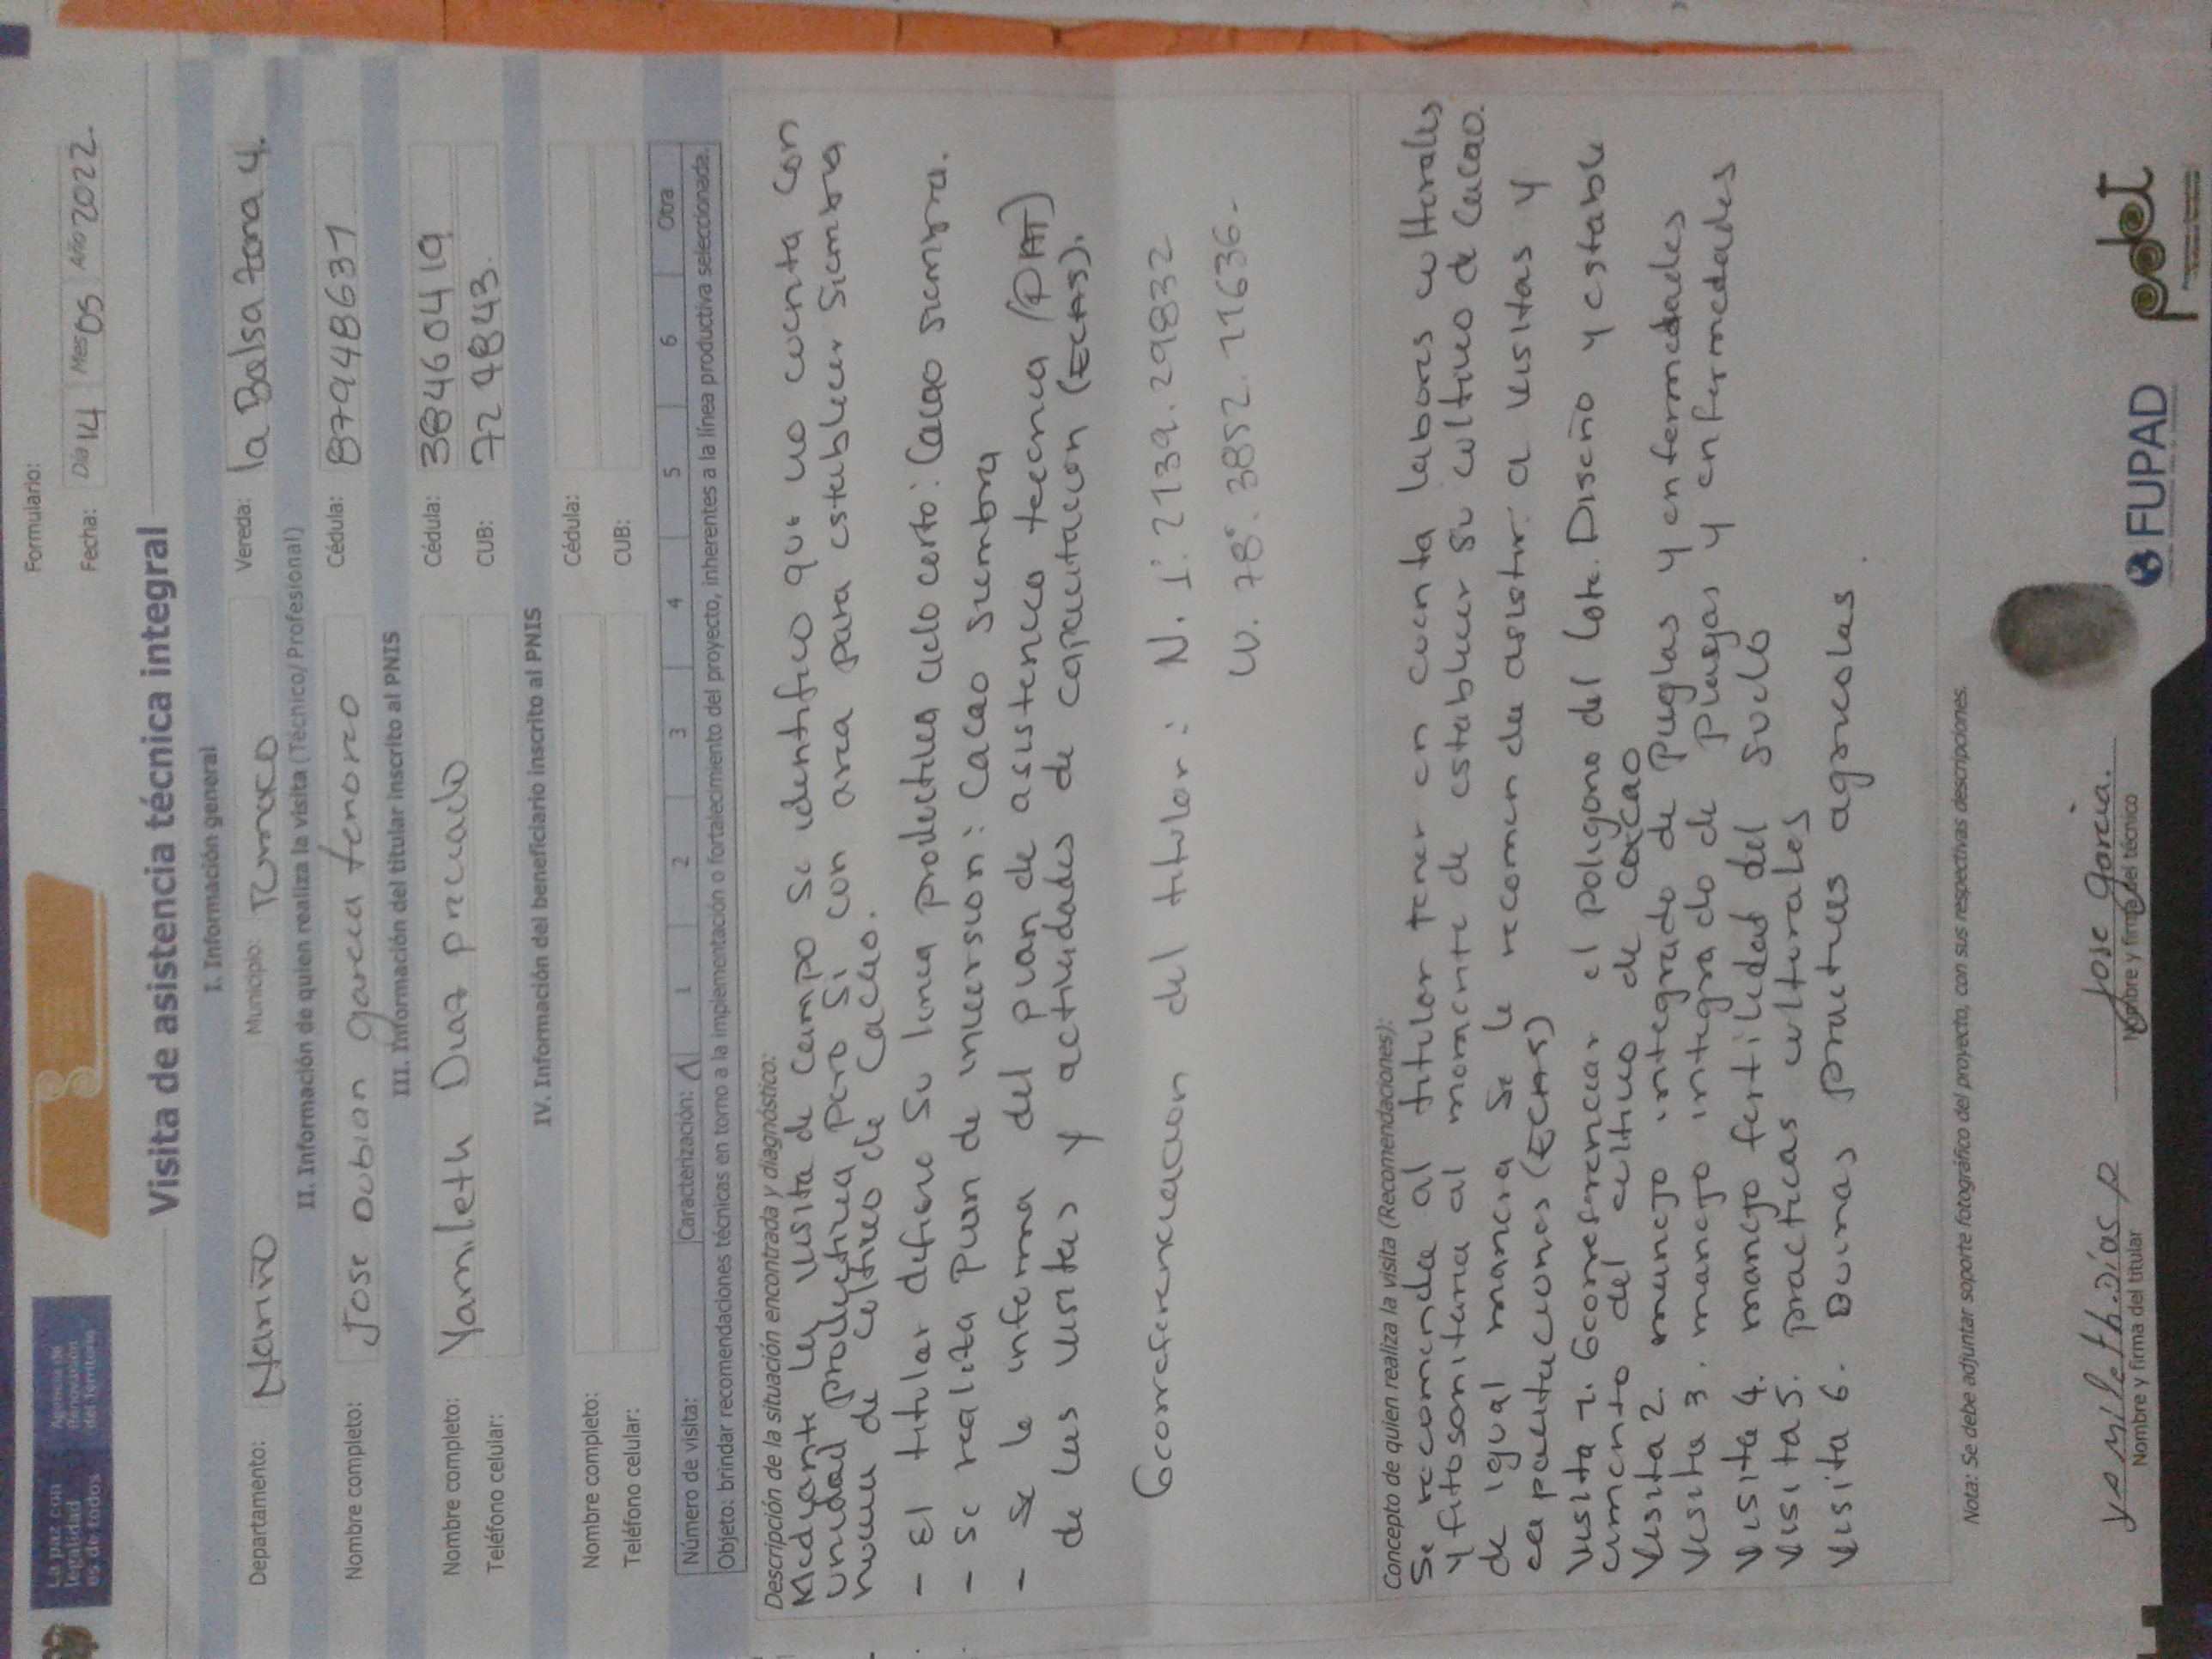 La paz con legalidad es de todos
Agencia de Renovación del Territorio
Formulario:
Fecha: Día 14 Mes 05 Año 2022.
Visita de asistencia técnica integral
I. Información general
Departamento: Nariño Municipio: Tumaco Vereda: la Balsa zona 4.
II. Información de quien realiza la visita (Técnico/ Profesional)
Nombre completo: Jose Oubian garcia tenorio Cédula: 87948631
III. Información del titular inscrito al PNIS
Nombre completo: Yamileth Diaz preciado Cédula: 38460419
Teléfono celular: CUB: 724843.
IV. Información del beneficiario inscrito al PNIS
Nombre completo: Cédula:
Teléfono celular: CUB:
Número de visita: Caracterización: 1 1 2 3 4 5 6 Otra
Objeto: brindar recomendaciones técnicas en torno a la implementación o fortalecimiento del proyecto, inherentes a la línea productiva seleccionada.
Descripción de la situación encontrada y diagnóstico:
Mediante la visita de campo se identifico que no cuenta con
unidad productiva pero si con area para establecer siembra
nueva de cultivo de cacao.
- El titular define su linea productiva ciclo corto: Cacao siembra.
- se realiza plan de inversion: Cacao siembra
- se le informa del plan de asistencia tecnica (PAT)
de las visitas y actividades de capacitacion (ECAS).
Georeferenciacion del titular: N. 1°. 2139. 29832
W. 78°. 3852. 11636.
Concepto de quien realiza la visita (Recomendaciones):
Se recomienda al titular tener en cuenta labores culturales
y fitosanitaria al momento de establecer su cultivo de cacao.
de igual manera se le recomienda asistir a visitas y
capacitaciones (ECAS)
Visita 1. Georefrenciar el poligono del lote. Diseño y estable
cimiento del cultivo de cacao
Visita 2. manejo integrado de puglas y enfermedades
Visita 3. manejo integrado de plagas y enfermedades
Visita 4. manejo fertilidad del suelo
Visita 5. practicas culturales
Visita 6. Buenas practicas agricolas.
Nota: Se debe adjuntar soporte fotográfico del proyecto, con sus respectivas descripciones.
yamileth.Días p
Nombre y firma del titular
Jose Garcia.
Nombre y firma del técnico
FUPAD
pdet